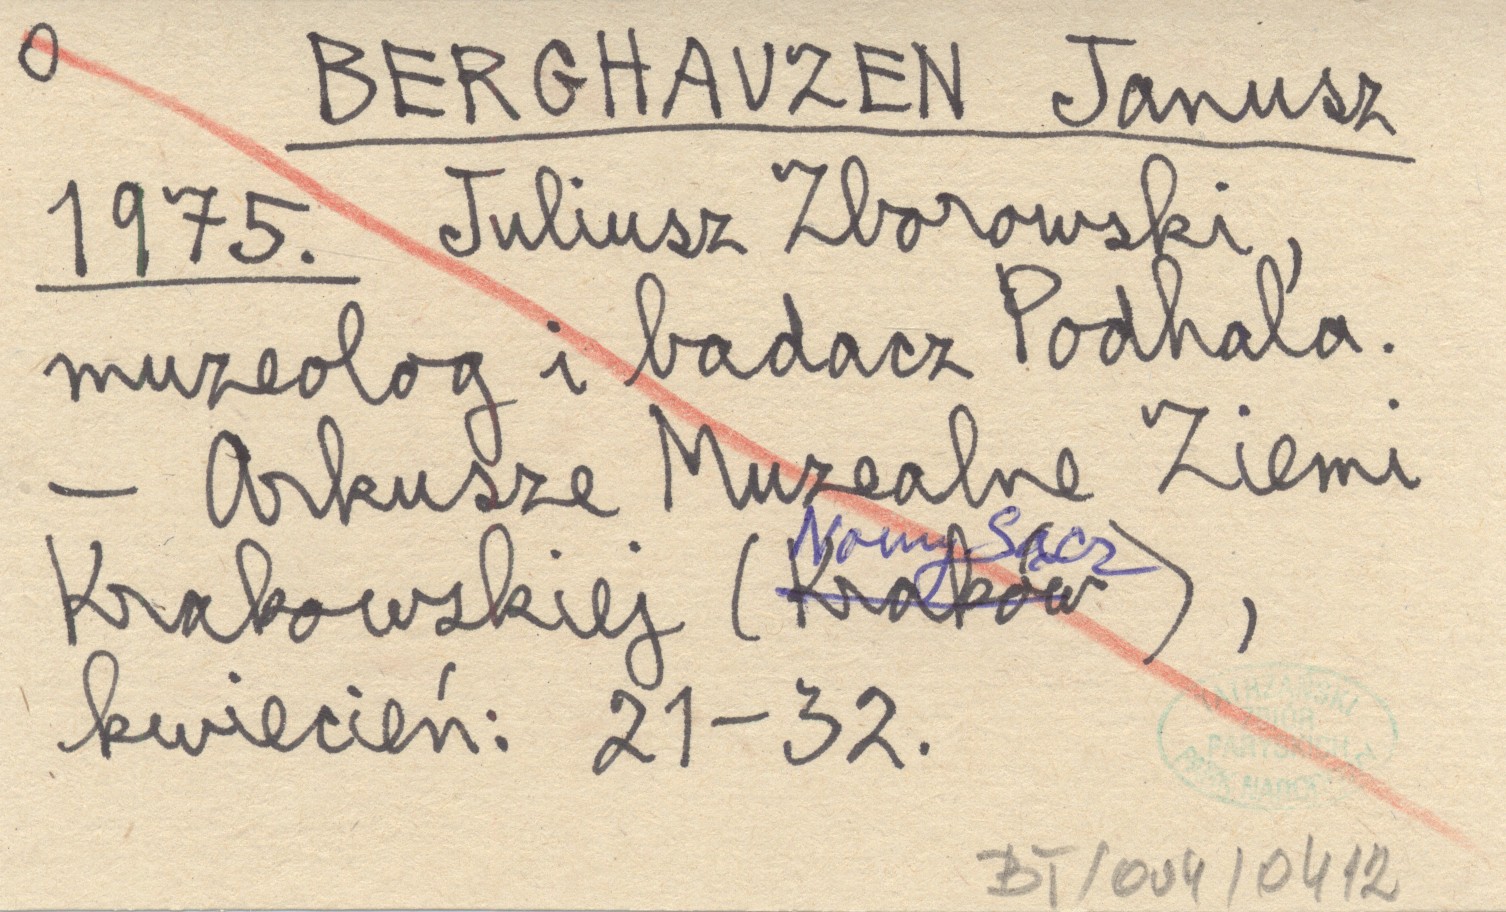 O BERGHAUZEN Janusz
1975. Juliusz Zborowski,
muzeolog i badacz Podhala.
— Arkusze Muzealne Ziemi
Nowy Sącz
Krakowskiej (Kraków),
kwiecień: 21-32.
BT/004/0412